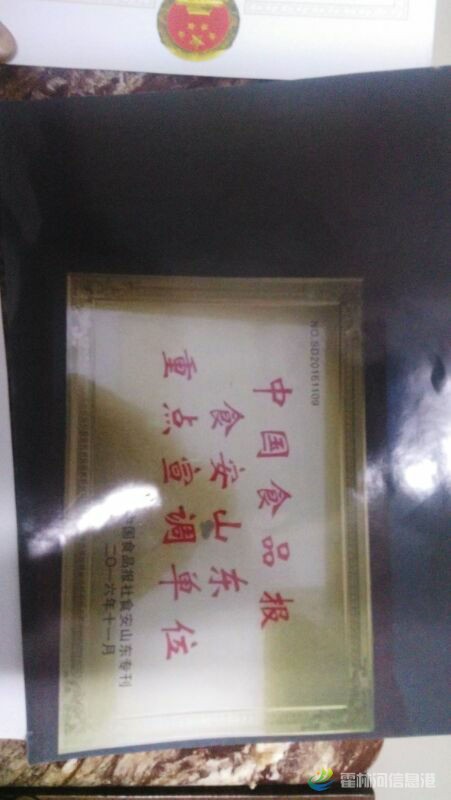 NO.SD20161109
中国食品报
食安山东
重点宣调单位
中国食品报社食安山东专刊
二〇一六年十一月
霍林河信息港